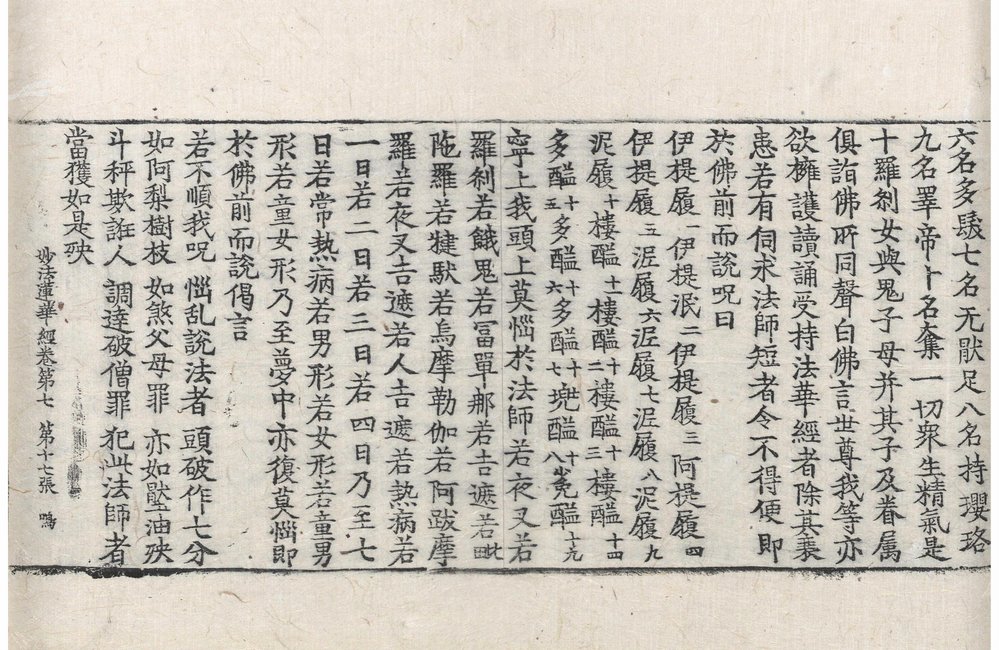 六名多髮七名无猒足八名持瓔珞
九名睪帝十名奪一切衆生精氣是
十羅刹女與鬼子母并其子及眷属
俱詣佛所同聲白佛言世尊我等亦
欲擁護讀誦受持法華經者除其衰
患若有伺求法師短者令不得便即
於佛前而說呪曰
伊提履一伊提泯二伊提履三阿提履四
伊提履五泥履六泥履七泥履八泥履九
泥履十樓醯十一樓醯十二樓醯十三樓醯十四
多醯十五多醯十六多醯十七兠醯十八㝹醯十九
寧上我頭上莫惱於法師若夜叉若
羅刹若餓鬼若冨單那若吉遮若毗
陁羅若犍馱若烏摩勒伽若阿跋摩
羅若夜叉吉遮若人吉遮若熱病若
一日若二日若三日若四日乃至七
日若常熱病若男形若女形若童男
形若童女形乃至夢中亦復莫惱即
於佛前而說偈言
若不順我呪 惱乱說法者 頭破作七分
如阿梨樹枝 如煞父母罪 亦如壓油殃
斗秤欺誑人 調達破僧罪 犯此法師者
當獲如是殃
妙法蓮華經卷第七 第十七張 鳴